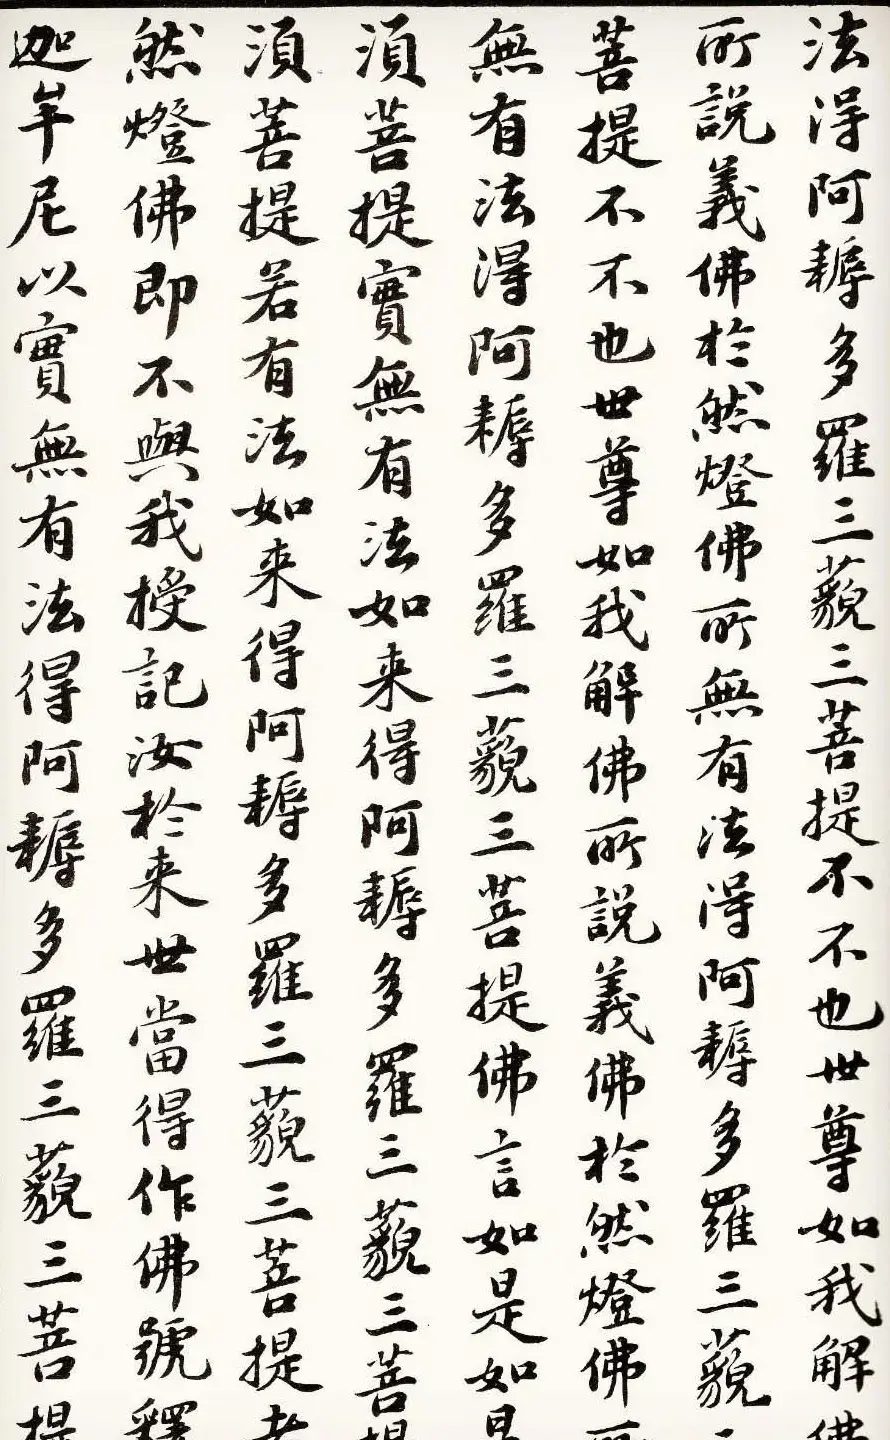 法得阿耨多羅三藐三菩提不不也世尊如我解佛
所說義佛於然燈佛所無有法得阿耨多羅三藐
菩提不不也世尊如我解佛所說義佛於然燈佛所
無有法得阿耨多羅三藐三菩提佛言如是如是
須菩提實無有法如来得阿耨多羅三藐三菩提
須菩提若有法如来得阿耨多羅三藐三菩提者
然燈佛即不與我授記汝於来世當得作佛號釋
迦牟尼以實無有法得阿耨多羅三藐三菩提